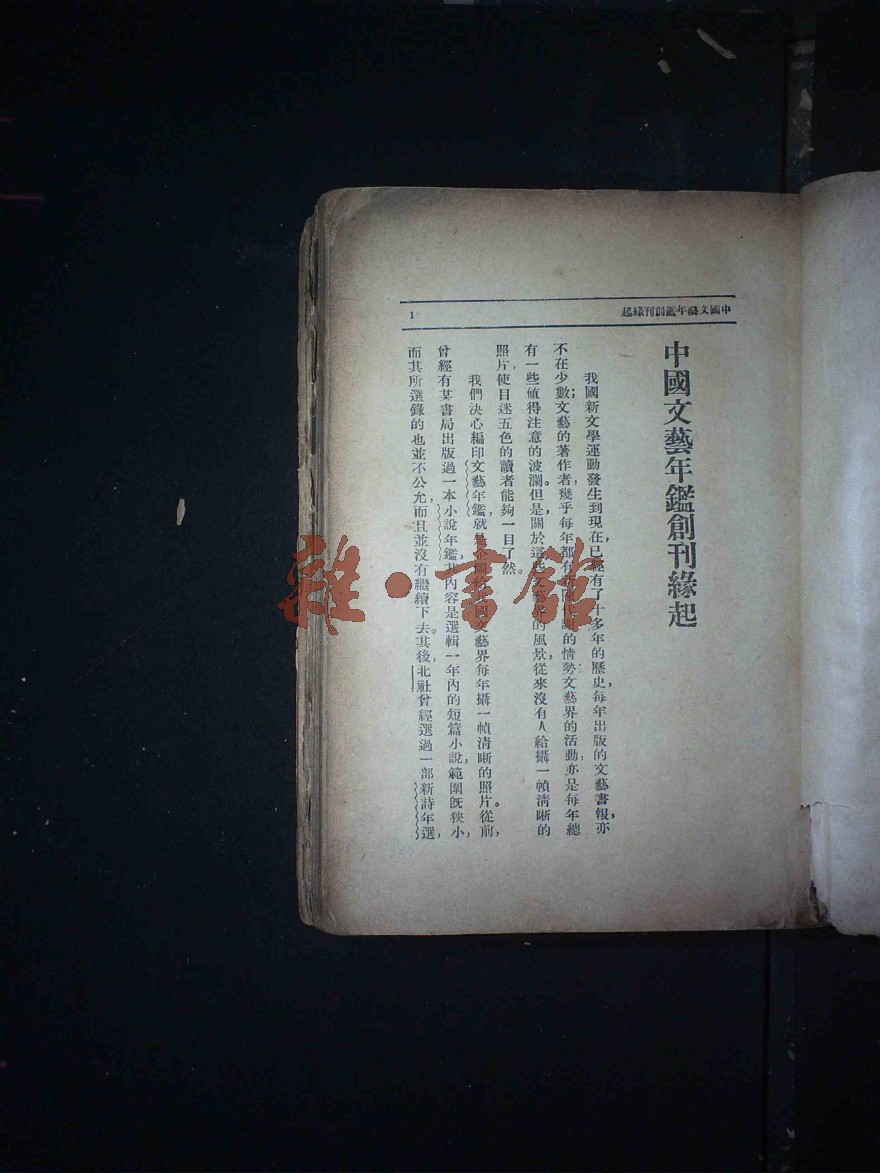 中國文藝年鑑創刊緣起
1
中國文藝年鑑創刊緣起
我國新文學運動發生到現在,已經有了十多年的歷史,每年出版的文藝書報,亦
不在少數;文藝的著作者,幾乎每年都有的情勢;文藝界的活動,亦是每年總
有一些値得注意的波瀾。但是,關於這些文藝界的風景,從來沒有人給攝一幀淸晰的
照片,使目迷五色的讀者能夠一目了然。
我們決心編印文藝年鑑,就是企圖給國文藝界每年攝一幀淸晰的照片。從前,
曾經有某書局出版過一本小說年鑑,其內容是選輯一年內的短篇小說,範圍旣狹小,
而其所選錄的也並不公允,而且並沒有繼續下去。其後,北社曾經選過一部新詩年選,
雜·書館